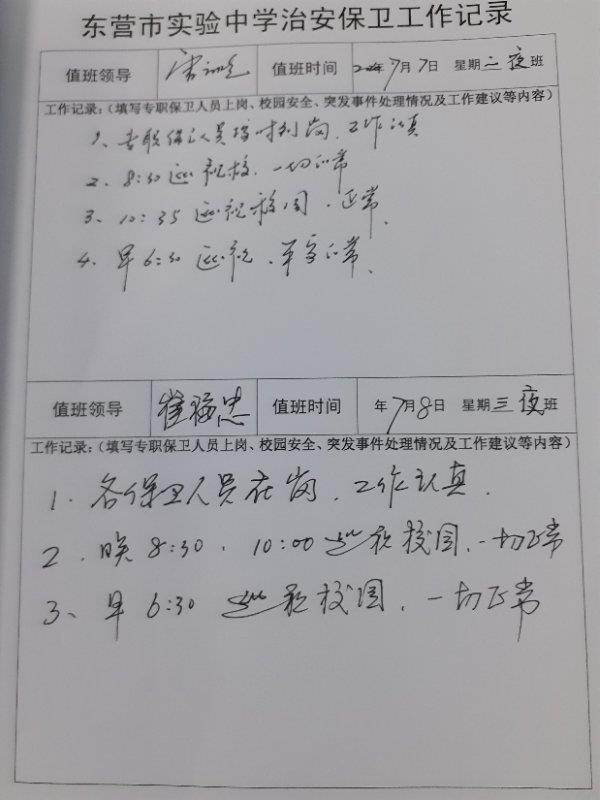 东营市实验中学治安保卫工作记录
值班领导 值班时间 7月7日 星期二夜班
工作记录:(填写专职保卫人员上岗、校园安全、突发事件处理情况及工作建议等内容)
1、专职保卫人员按时到岗,工作认真
2、8:30巡视校,一切正常
3、10:35巡视校园,正常、
4、早6:30巡视、平安正常、
值班领导 崔 忠 值班时间 年7月8日 星期三夜班
工作记录:(填写专职保卫人员上岗、校园安全、突发事件处理情况及工作建议等内容)
1.各保卫人员在岗,工作认真.
2.晚8:30、10:00巡视校园,一切正常
3、早6:30巡视校园,一切正常